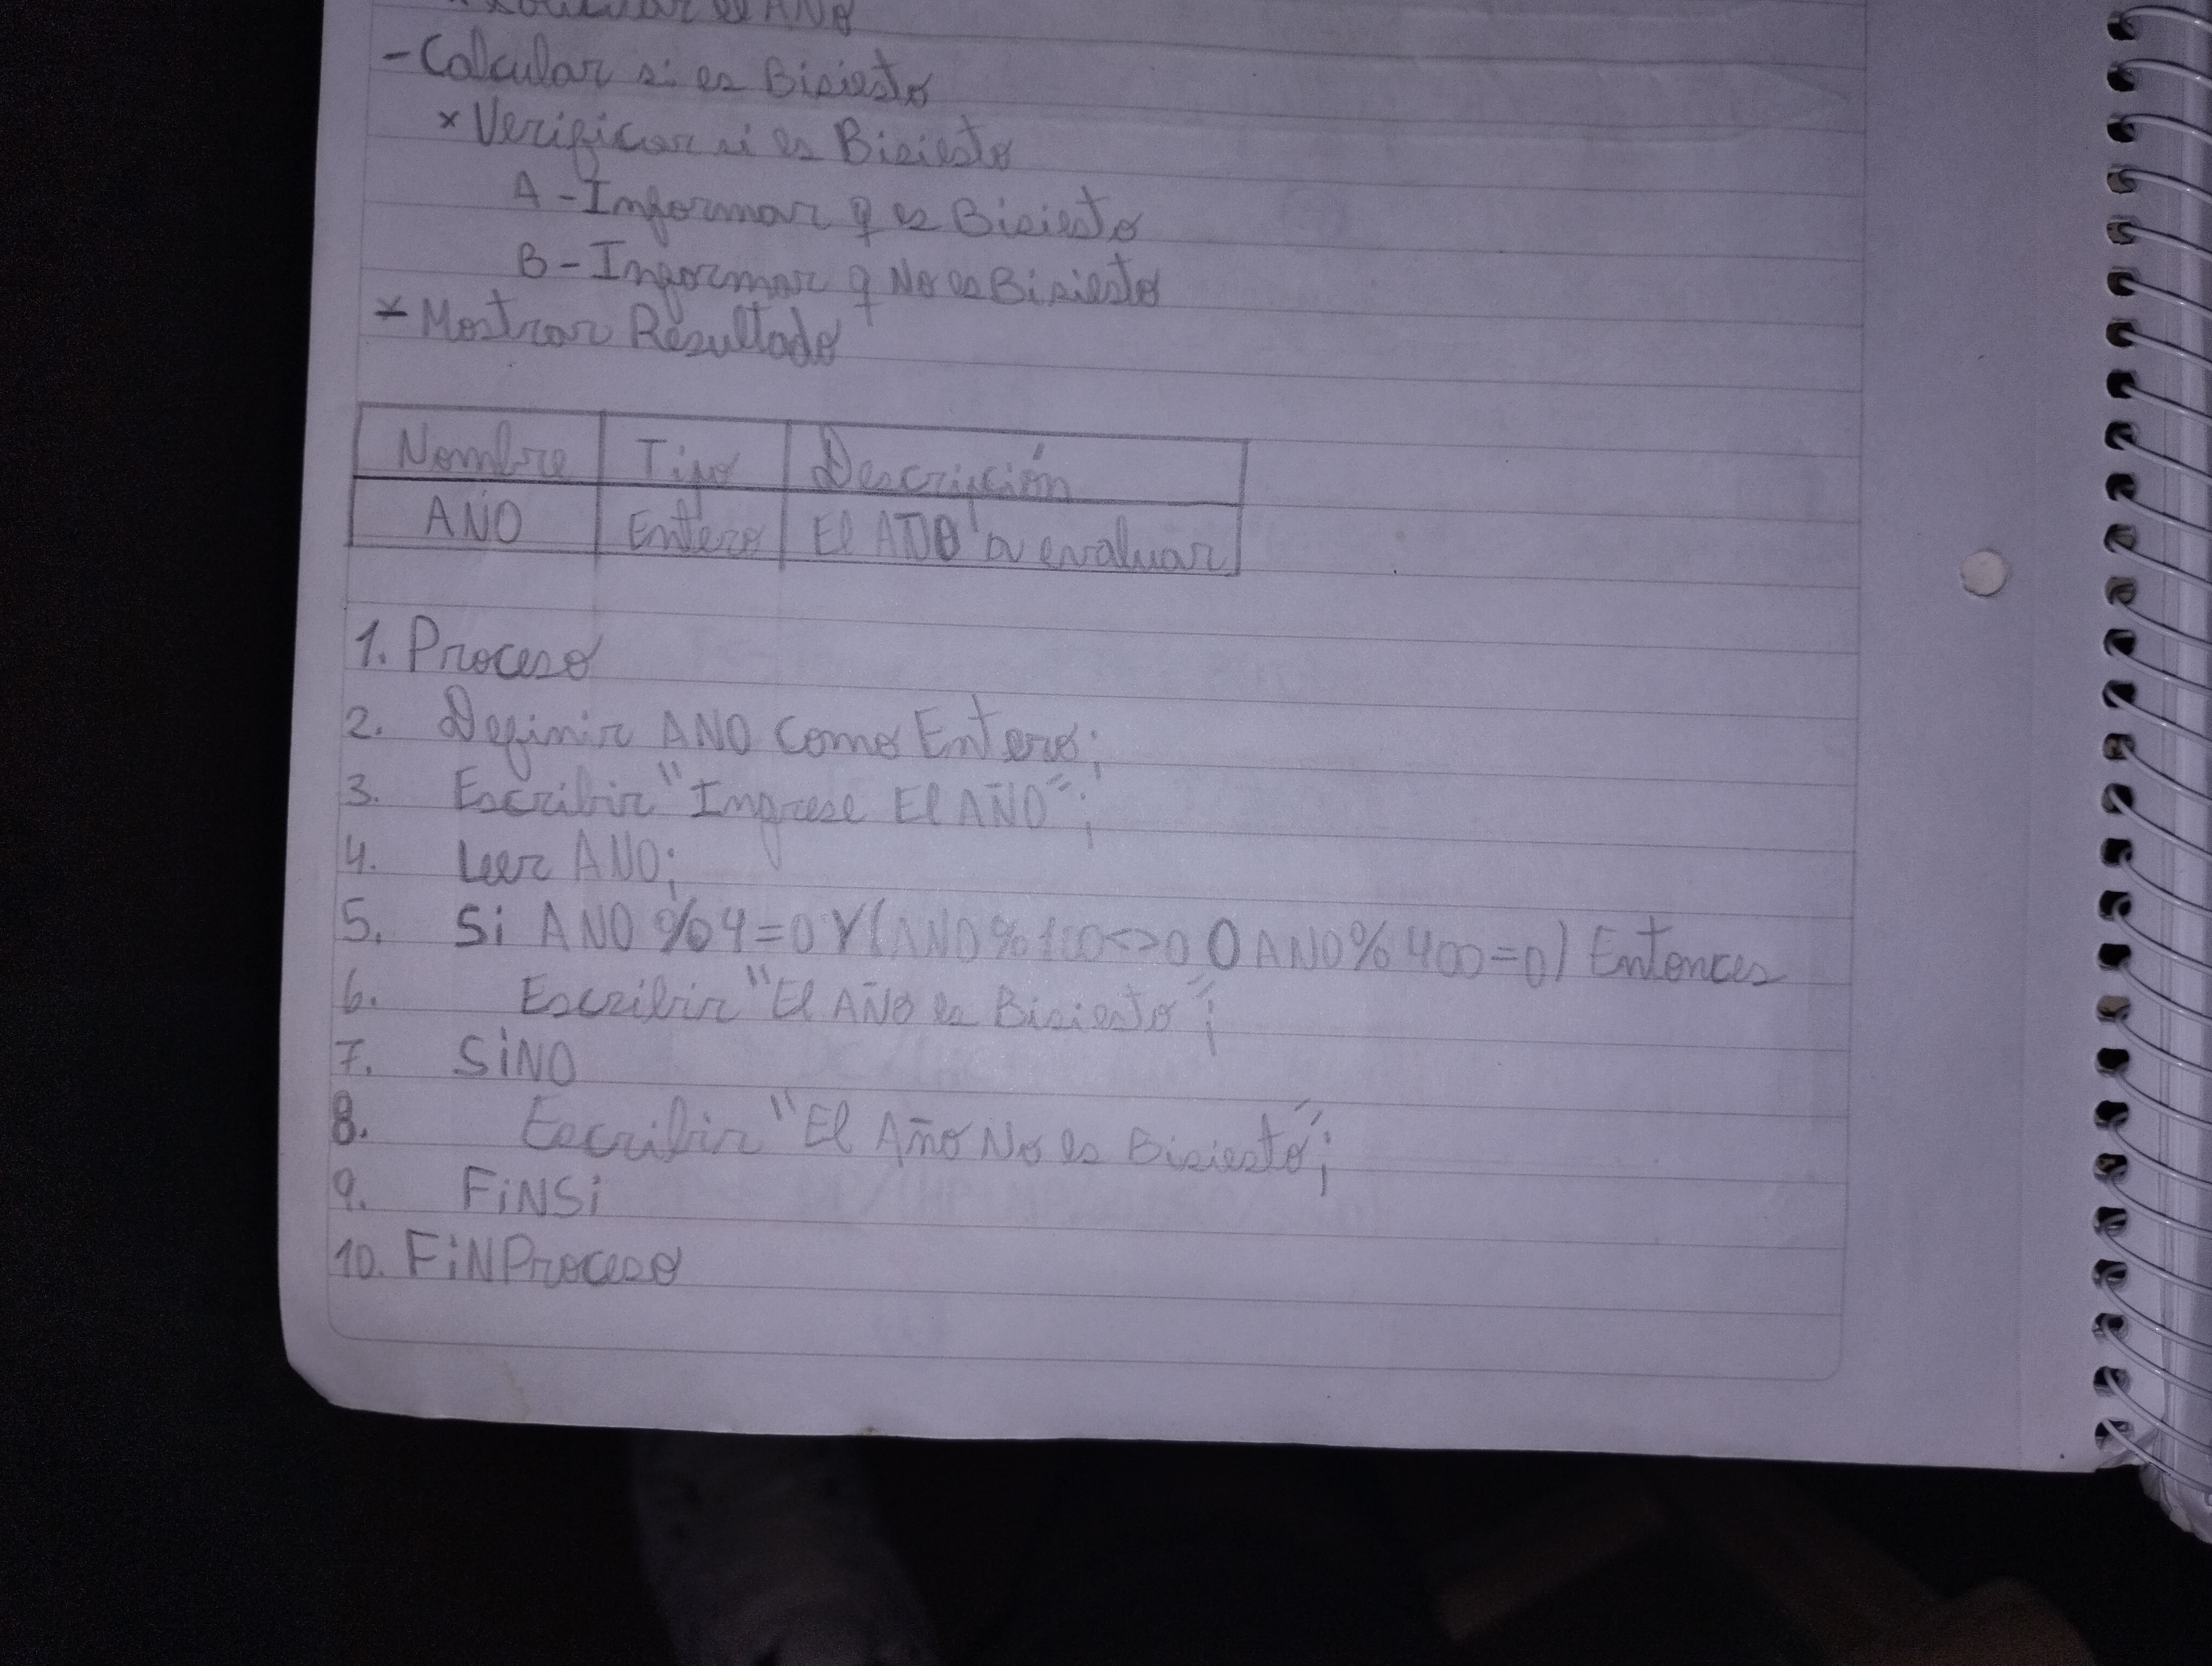 * Solicitar el AÑO
- Calcular si es Bisiesto
* Verificar si es Bisiesto
A - Informar q es Bisiesto
B - Informar q No es Bisiesto
* Mostrar Resultado
Nombre Tipo Descripción
AÑO Entero El AÑO a evaluar
1. Proceso
2. Definir ANO Como Entero;
3. Escribir "Ingrese El AÑO";
4. Leer ANO;
5. Si ANO % 4 = 0 Y (ANO % 100 <> 0 O ANO % 400 = 0) Entonces
6. Escribir "El AÑO es Bisiesto";
7. SiNO
8. Escribir "El Año No es Bisiesto";
9. FiNSi
10. FiNProceso